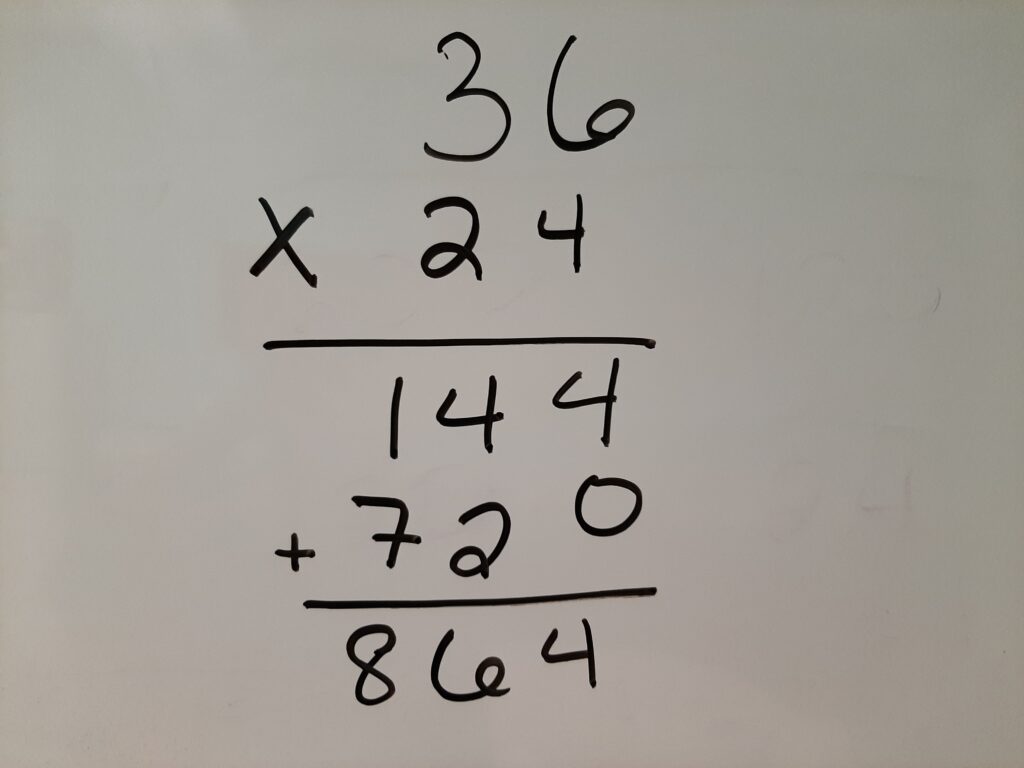 36
X 24
144
+ 720
864